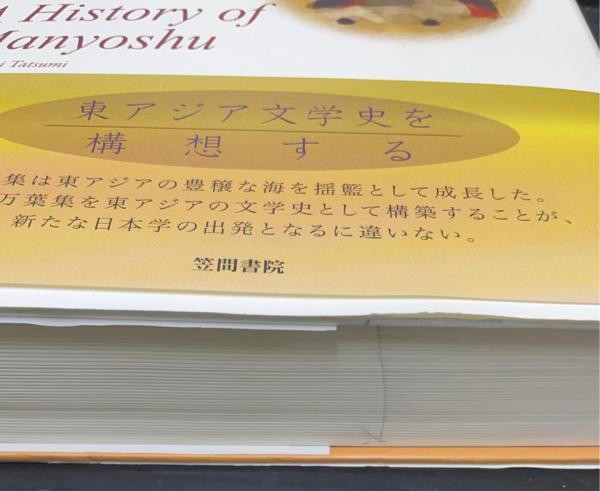 A History of
Manyoshu
i Tatsumi
東アジア文学史を
構想する
集は東アジアの豊穣な海を揺籃として成長した。
万葉集を東アジアの文学史として構築することが、
新たな日本学の出発となるに違いない。
笠間書院